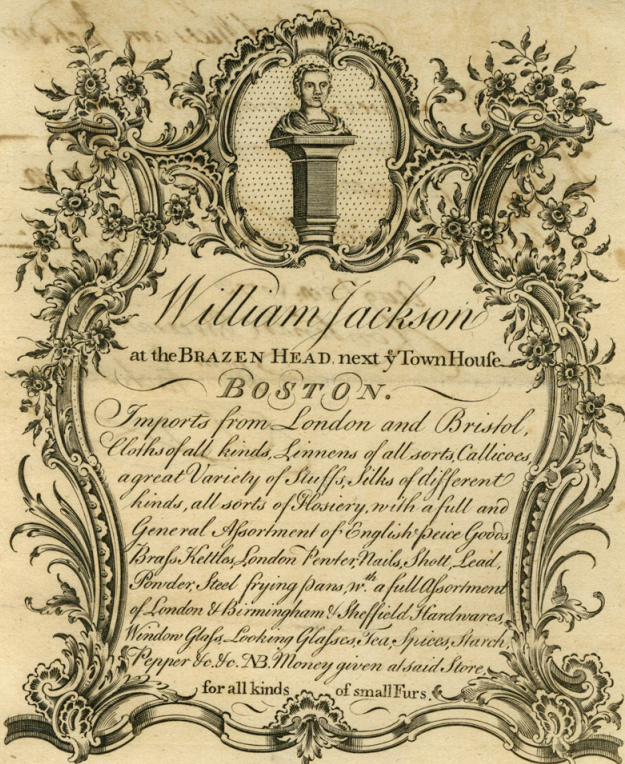 William Jackson
at the BRAZEN HEAD next yͤ Town House
BOSTON.
Imports from London and Bristol,
Cloths of all kinds, Linnens of all sorts, Callicoes,
a great Variety of Stuffs, Silks of different
kinds, all sorts of Hosiery, with a full and
General Assortment of English peice Goods,
Brass Kettles, London Pewter, Nails, Shott, Lead,
Powder, Steel frying pans, wᵗʰ a full Assortment
of London & Birmingham & Sheffield Hardwares,
Window Glass, Looking Glasses, Tea, Spices, Starch,
Pepper &c. &c. NB. Money given at said Store
for all kinds of small Furs.